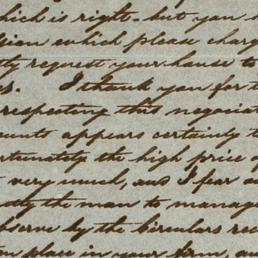 which is right - but you
which please charge
request your house to
I thank you for
respecting this negotia
ounts appears certainly t
ortunately the high price of
very much, and I fear
the man to manage
bserve by the Circulars rec
place in your firm, an